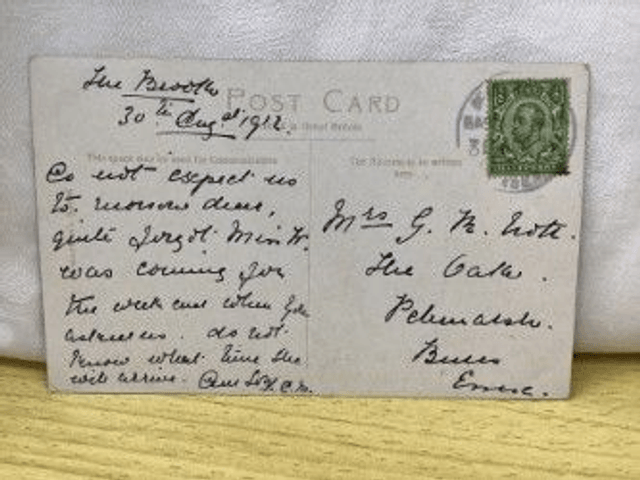 The Brooks
30th Augst 1912.
POST CARD
This space may be used for Communications
The Address to be written
here
Do not expect us
To morrow dear,
quite forgot Miss W.
was coming for
the week end when you
asked us. do not
know what time she
will arrive.
Mrs G. M. Nott.
The Oaks.
Pebmarsh.
Bures
Essex.